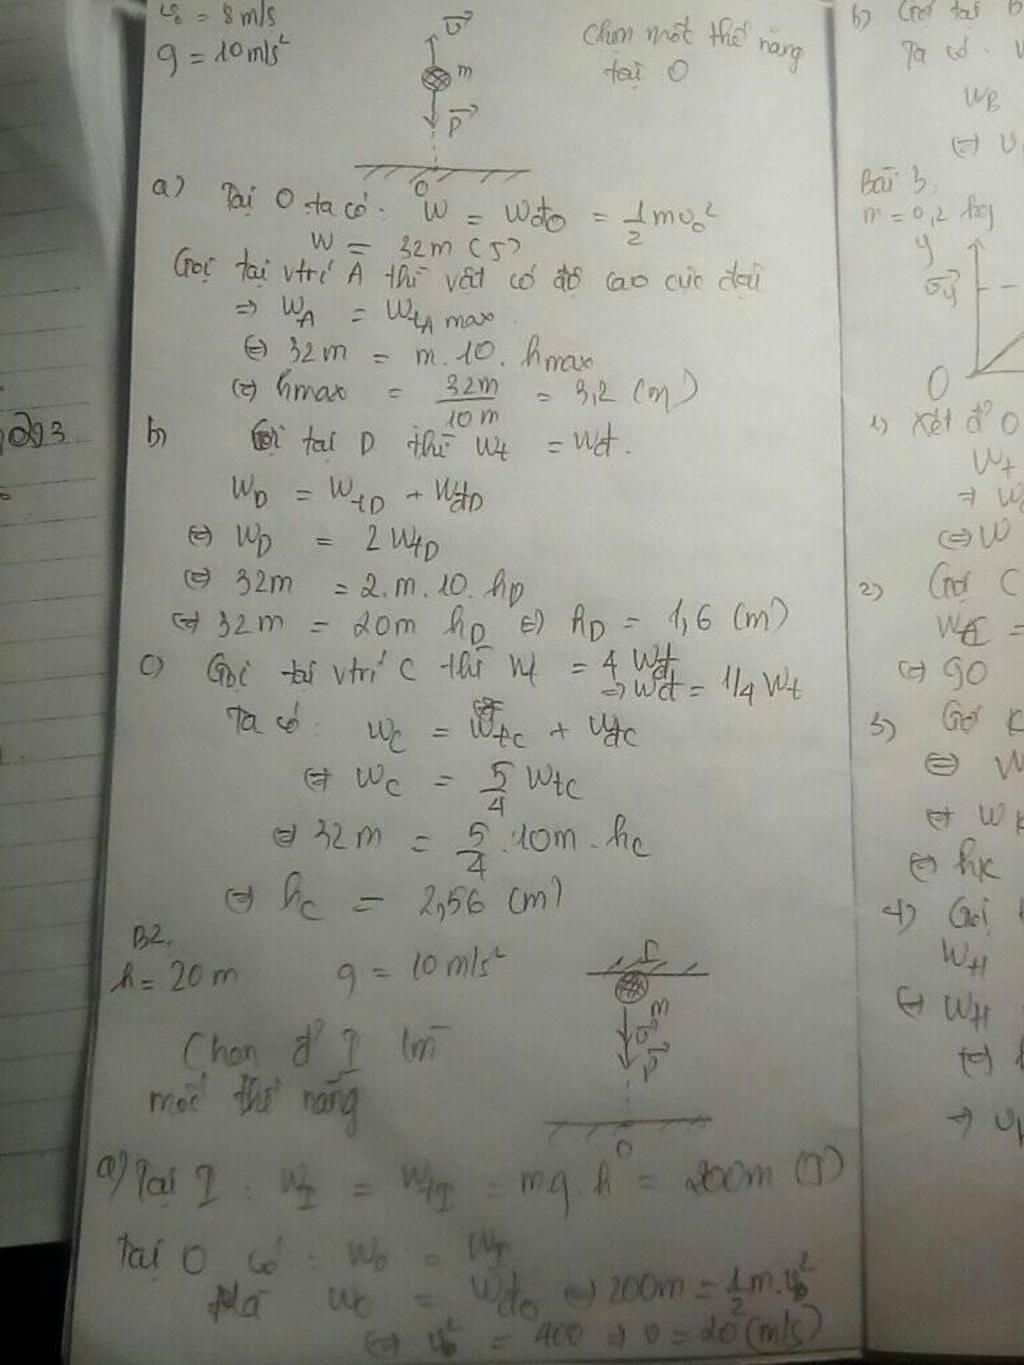 v₀ = 8 m/s
g = 10 m/s²
v⃗
m
P⃗
O
Chọn mốt thế năng
tại O
a) Tại O ta có: W = Wđ₀ = 1/2 mv₀²
W = 32m (J)
Gọi tại vtrí A thì vật có độ cao cực đại
⇒ W_A = W_tA max
⇔ 32m = m.10.hmax
⇔ hmax = 32m/10m = 3,2 (m)
b) Gọi tại D thì Wt = Wđ.
W_D = W_tD + W_đD
⇔ W_D = 2 W_tD
⇔ 32m = 2.m.10.h_D
⇔ 32m = 20m h_D ⇔ h_D = 1,6 (m)
c) Gọi tại vtrí C thì Wt = 4 Wđ
⇒ Wđ = 1/4 Wt
Ta có: W_C = W_tC + W_đC
⇔ W_C = 5/4 W_tC
⇔ 32m = 5/4 . 10m . h_C
⇔ h_C = 2,56 (m)
B2.
h = 20 m g = 10 m/s²
I
m
v⃗
P⃗
O
Chọn đ' I làm
mốc thế năng
a) Tại I : W_I = W_tI = mg.h = 200m (J)
Tại O có : W₀ = W_I
Mà W₀ = Wđ₀ ⇔ 200m = 1/2 m.v₀²
⇔ v₀² = 400 ⇒ v = 20 (m/s)
b) Gọi tại B
Ta có:
W_B
⇔ v
Bài 3:
m = 0,2 kg
y
v⃗y
O
1) Xét đ' O
Wt
⇒ W
⇔ W
2) Gọi C
⇔ 90
3) Gọi K
⇔ W
⇔ W_K
⇔ h_K
4) Gọi
W_H
⇔ W_H